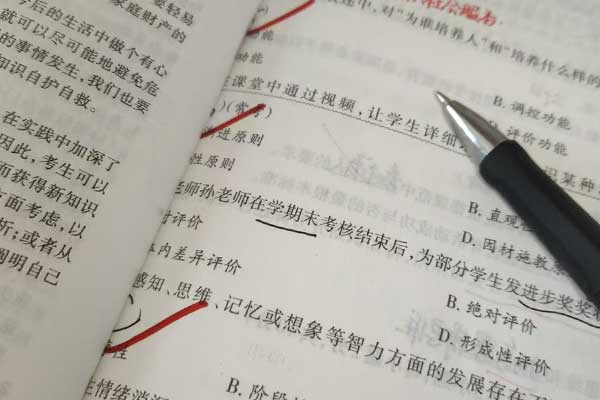 家庭财产的
后的生活中做个有心
就可以尽可能地避免危
的事情发生，我们也要
知识自护自救。
在实践中加深了
因此，考生可以
而获得新知识
方面考虑，以
析；或者从
阐明自己
中，对“为谁培养人”和“培养什么样的
功能
B. 调控功能
功能
D. 评价功能
课堂中通过视频，让学生详细
识某种
进原则
B. 直观
性原则
D. 因材施教
老师孙老师在学期末考核结束后，为部分学生发进步奖奖
对评价
B. 绝对评价
体内差异评价
D. 形成性评价
感知、思维、记忆或想象等智力方面的发展存在
性
B. 阶段
情绪消